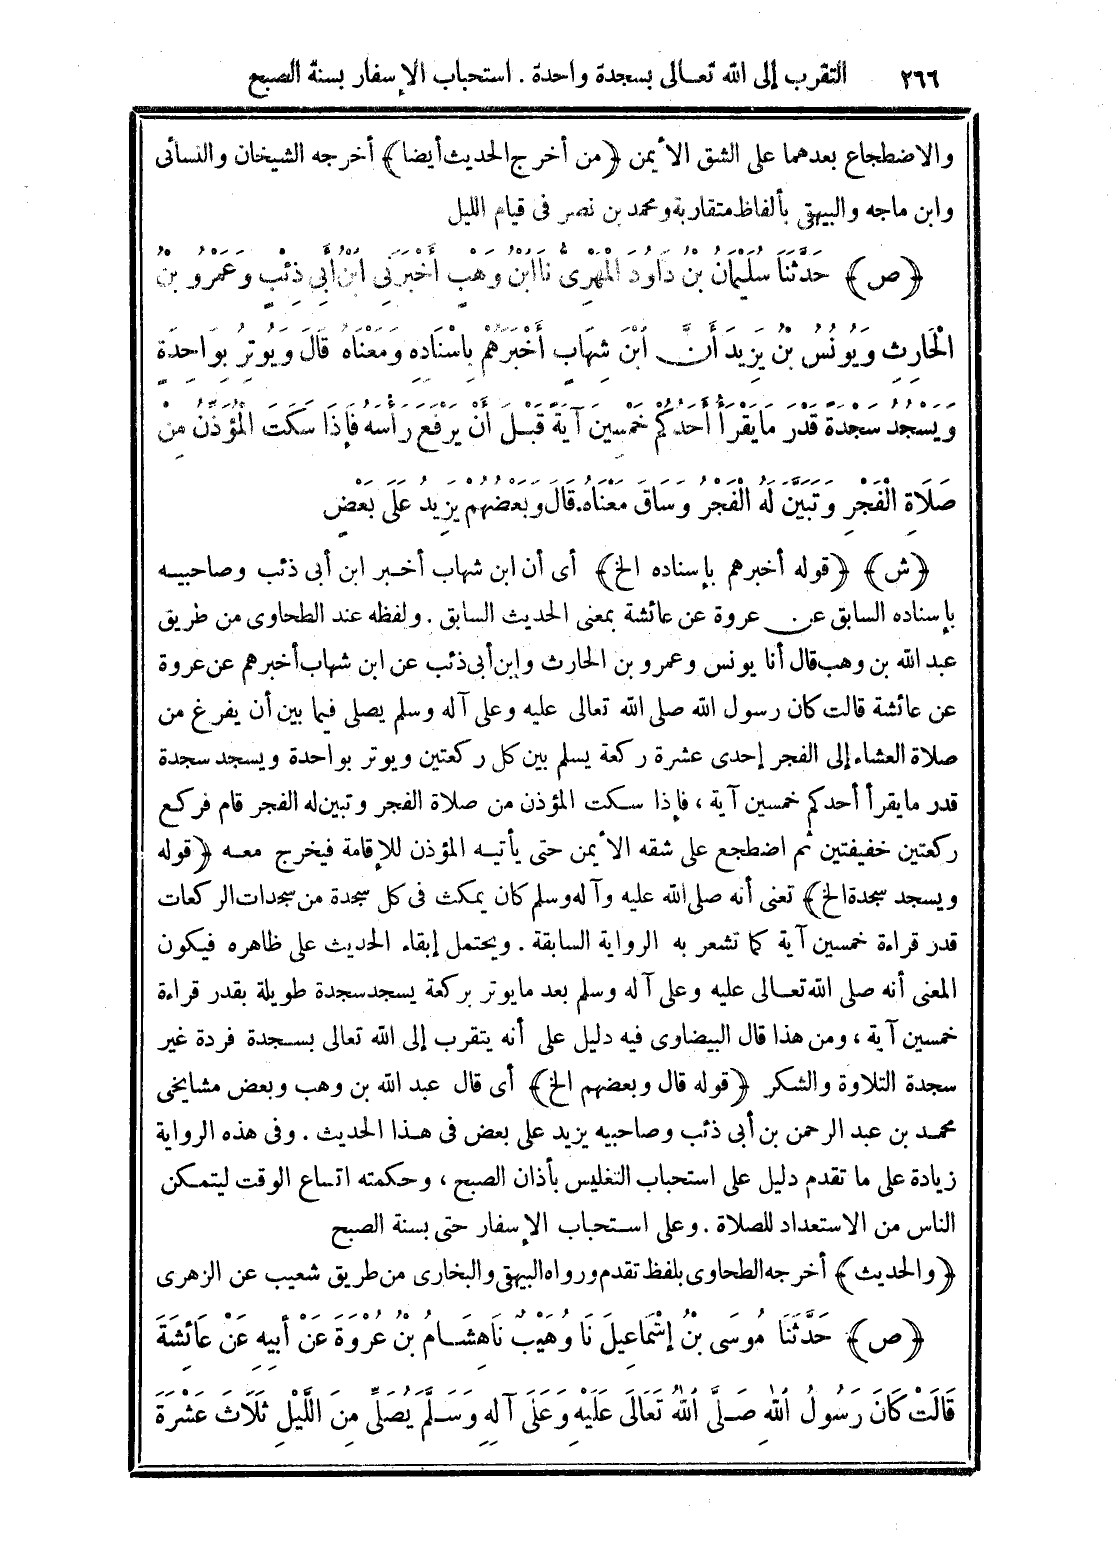 ٢٦٦ التقرب إلى الله تعالى بسجدة واحدة . استحباب الإسفار بسنة الصبح
والاضطجاع بعدهما على الشق الأيمن ﴿من أخرج الحديث أيضا﴾ أخرجه الشيخان والنسائى
وابن ماجه والبيهقى بألفاظ متقاربة ومحمد بن نصر فى قيام الليل
﴿ص﴾ حَدَّثَنَا سُلَيْمَانُ بْنُ دَاوُدَ الْمَهْرِىُّ نَا ابْنُ وَهْبٍ أَخْبَرَنِى ابْنُ أَبِى ذِئْبٍ وَعَمْرُو بْنُ
الْحَارِثِ وَيُونُسُ بْنُ يَزِيدَ أَنَّ ابْنَ شِهَابٍ أَخْبَرَهُمْ بِإِسْنَادِهِ وَمَعْنَاهُ قَالَ وَيُوتِرُ بِوَاحِدَةٍ
وَيَسْجُدُ سَجْدَةً قَدْرَ مَا يَقْرَأُ أَحَدُكُمْ خَمْسِينَ آيَةً قَبْلَ أَنْ يَرْفَعَ رَأْسَهُ فَإِذَا سَكَتَ الْمُؤَذِّنُ مِنْ
صَلَاةِ الْفَجْرِ وَتَبَيَّنَ لَهُ الْفَجْرُ وَسَاقَ مَعْنَاهُ. قَالَ وَبَعْضُهُمْ يَزِيدُ عَلَى بَعْضٍ
﴿ش﴾ ﴿قوله أخبرهم بإسناده الخ﴾ أى أن ابن شهاب أخبر ابن أبى ذئب وصاحبيه
بإسناده السابق عن عروة عن عائشة بمعنى الحديث السابق . ولفظه عند الطحاوى من طريق
عبد الله بن وهب قال أنا يونس وعمرو بن الحارث وابن أبى ذئب عن ابن شهاب أخبرهم عن عروة
عن عائشة قالت كان رسول الله صلى الله تعالى عليه وعلى آله وسلم يصلى فيما بين أن يفرغ من
صلاة العشاء إلى الفجر إحدى عشرة ركعة يسلم بين كل ركعتين ويوتر بواحدة ويسجد سجدة
قدر ما يقرأ أحدكم خمسين آية ، فإذا سكت المؤذن من صلاة الفجر وتبين له الفجر قام فركع
ركعتين خفيفتين ثم اضطجع على شقه الأيمن حتى يأتيه المؤذن للإقامة فيخرج معه ﴿قوله
ويسجد سجدة الخ﴾ تعنى أنه صلى الله عليه وآله وسلم كان يمكث فى كل سجدة من سجدات الركعات
قدر قراءة خمسين آية كما تشعر به الرواية السابقة . ويحتمل إبقاء الحديث على ظاهره فيكون
المعنى أنه صلى الله تعالى عليه وعلى آله وسلم بعد ما يوتر بركعة يسجد سجدة طويلة بقدر قراءة
خمسين آية ، ومن هذا قال البيضاوى فيه دليل على أنه يتقرب إلى الله تعالى بسجدة فردة غير
سجدة التلاوة والشكر ﴿قوله قال وبعضهم الخ﴾ أى قال عبد الله بن وهب وبعض مشايخى
محمد بن عبد الرحمن بن أبى ذئب وصاحبيه يزيد على بعض فى هذا الحديث . وفى هذه الرواية
زيادة على ما تقدم دليل على استحباب التغليس بأذان الصبح ، وحكمته اتساع الوقت ليتمكن
الناس من الاستعداد للصلاة . وعلى استحباب الإسفار حتى بسنة الصبح
﴿والحديث﴾ أخرجه الطحاوى بلفظ تقدم ورواه البيهقى والبخارى من طريق شعيب عن الزهرى
﴿ص﴾ حَدَّثَنَا مُوسَى بْنُ إِسْمَاعِيلَ نَا وُهَيْبٌ نَا هِشَامُ بْنُ عُرْوَةَ عَنْ أَبِيهِ عَنْ عَائِشَةَ
قَالَتْ كَانَ رَسُولُ اللهِ صَلَّى اللهُ تَعَالَى عَلَيْهِ وَعَلَى آلِهِ وَسَلَّمَ يُصَلِّى مِنَ اللَّيْلِ ثَلَاثَ عَشْرَةَ